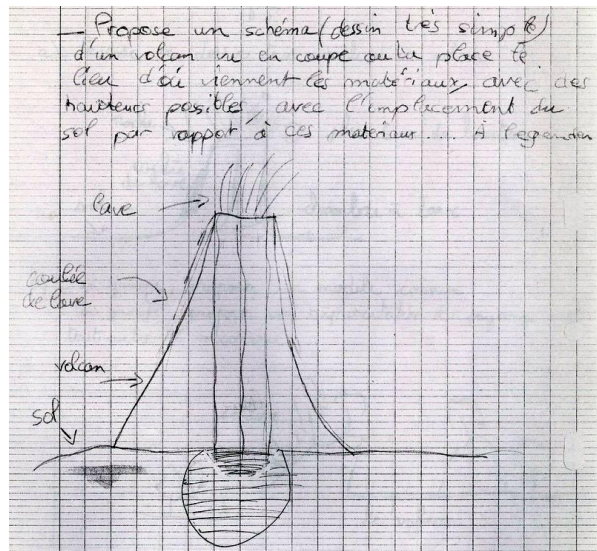 — Propose un schéma (dessin très simple)
d'un volcan vu en coupe où tu place le
lieu d'où viennent les matériaux, avec des
hauteurs possibles, avec l'implacement du
sol par rapport à ces materiaux... À legender
lave
coulée
de lave
volcan
sol